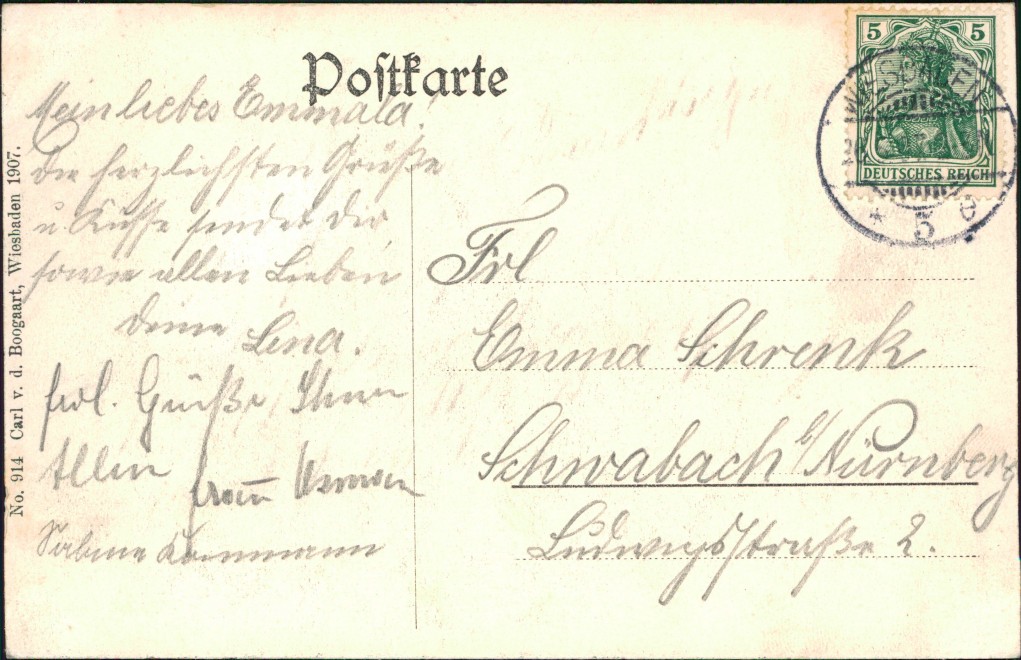 Postkarte
Mein liebes Emmala!
die herzlichsten Grüße
u. Küsse sendet dir
sowie allen Lieben
deine Lina.
frdl. Grüße Ihnen
Allen
Sabine
No. 914 Carl v. d. Boogaart, Wiesbaden 1907.
5 5
DEUTSCHES REICH
WIESBADEN
* 5 e
Frl
Emma Schrenk
Schwabach b/Nürnberg
Ludwigsstraße 2.